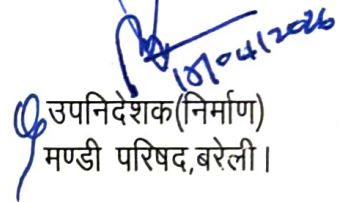 18/04/2026
उपनिदेशक(निर्माण)
मण्डी परिषद,बरेली।